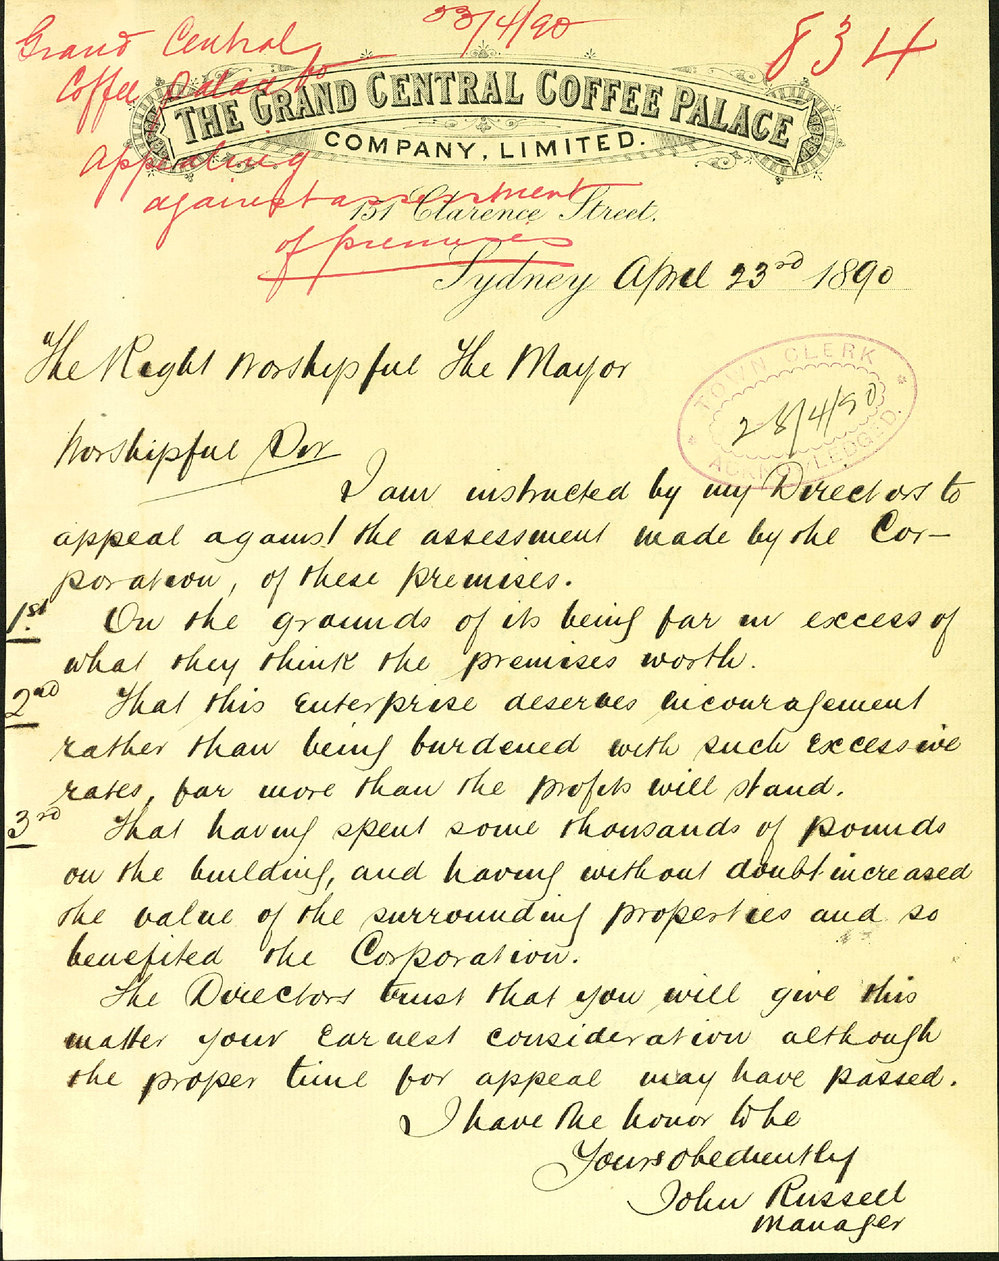 23/4/90
834
Grand Central
Coffee Palace Co
appealing
against assessment
of premises
THE GRAND CENTRAL COFFEE PALACE
COMPANY, LIMITED.
151 Clarence Street.
Sydney April 23rd 1890
TOWN CLERK
28/4/90
ACKNOWLEDGED.
The Right Worshipful The Mayor
Worshipful Sir
I am instructed by my Directors to
appeal against the assessment made by the Cor-
poration, of these premises.
1st. On the grounds of its being far in excess of
what they think the premises worth.
2nd That this Enterprise deserves encouragement
rather than being burdened with such excessive
rates, far more than the profits will stand.
3rd That having spent some thousands of pounds
on the building, and having without doubt increased
the value of the surrounding properties and so
benefited the Corporation.
The Directors trust that you will give this
matter your Earnest consideration although
the proper time for appeal may have passed.
I have the honor to be
Yours obediently
John Russell
Manager